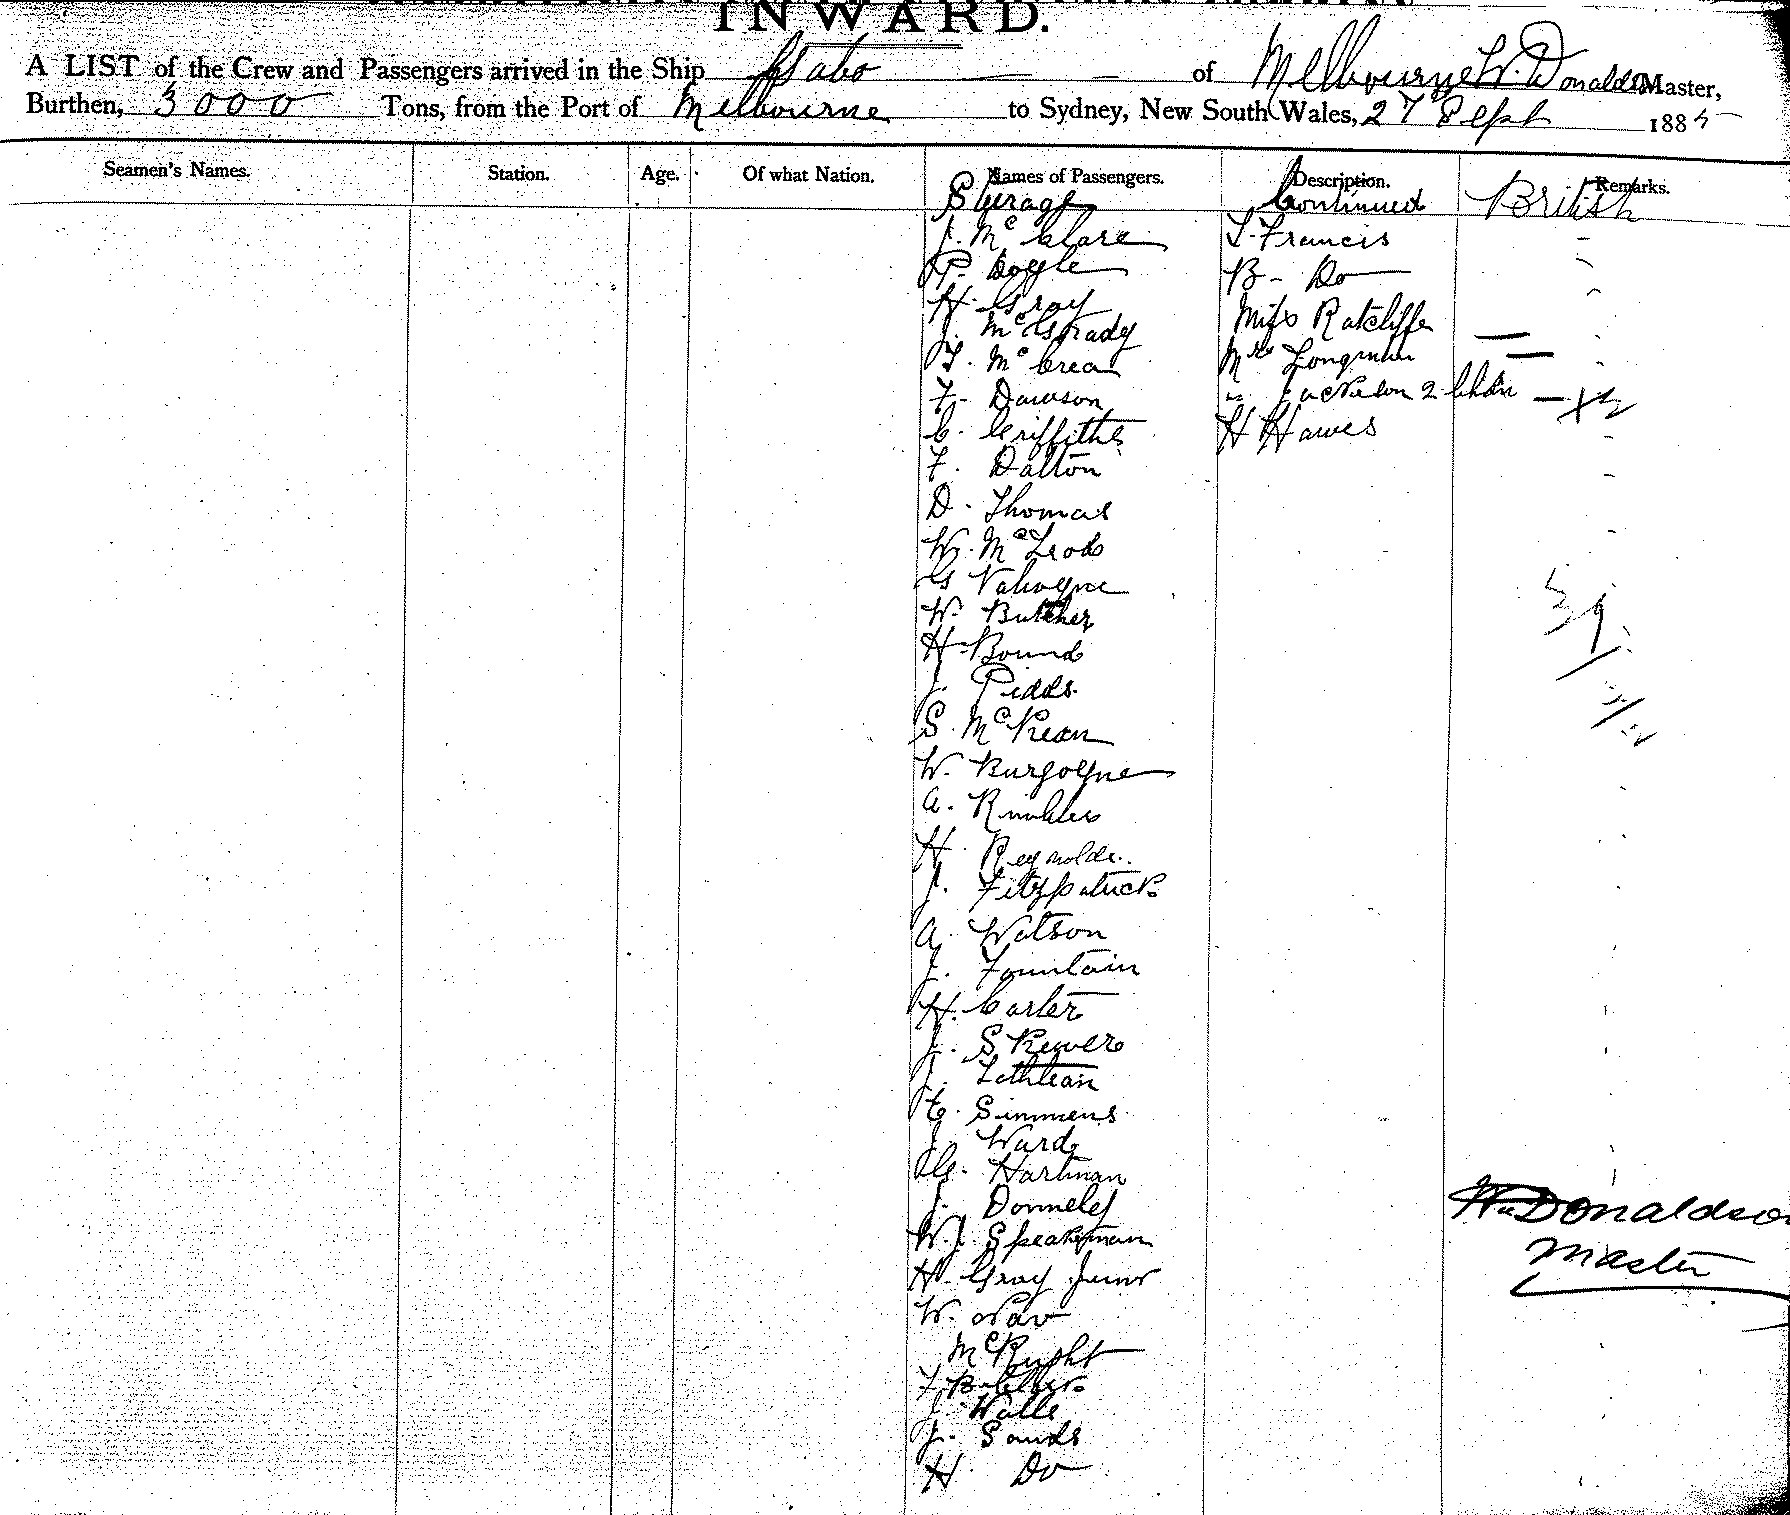 INWARD.
A LIST of the Crew and Passengers arrived in the Ship Gabo of Melbourne W. Donaldson Master,
Burthen, 3000 Tons, from the Port of Melbourne to Sydney, New South Wales, 27 Sept 1885
Seamen's Names. Station. Age. Of what Nation. Names of Passengers. Description. Remarks.
Steerage Continued British
J. McClare T. Francis
P. Doyle B - Do
H. Gray Miss Ratcliffe
J. McGrady Mrs Longman
T. McCrea " Jackson 2 Chdn
F. Dawson H Hawes
C. Griffiths
F. Dalton
D. Thomas
W. McLeod
G
W. Butcher
H Bound
J. Pidds
S. McKean
W. Burgoyne
A. Rimbles
H. Reynolds
J. Fitzpatrick
A. Watson
J. Fountain
H. Carter
J. Skewer
J. Lethlean
E. Simmens
J. Ward
G. Hartman
J. Donneley
W.J. Speakman
H. Gray Junr
W.
McKnight
T
J. Walle
J. Sands
H Do
39
W. Donaldson
Master